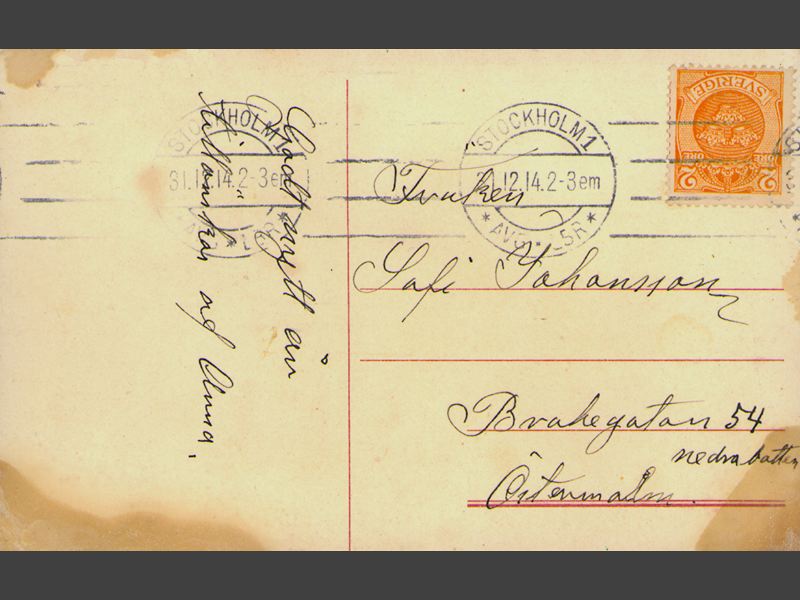 Godt nytt år
tillönskas af Anna.
STOCKHOLM 1
31.12.14.2-3em
* AVG. L5R *
STOCKHOLM 1
12.14.2-3em
* AVG. L5R *
SVERIGE
2 ÖRE ÖRE 2
Fruken
Sofi Johansson
Brahegatan 54
nedra botten
Östermalm.